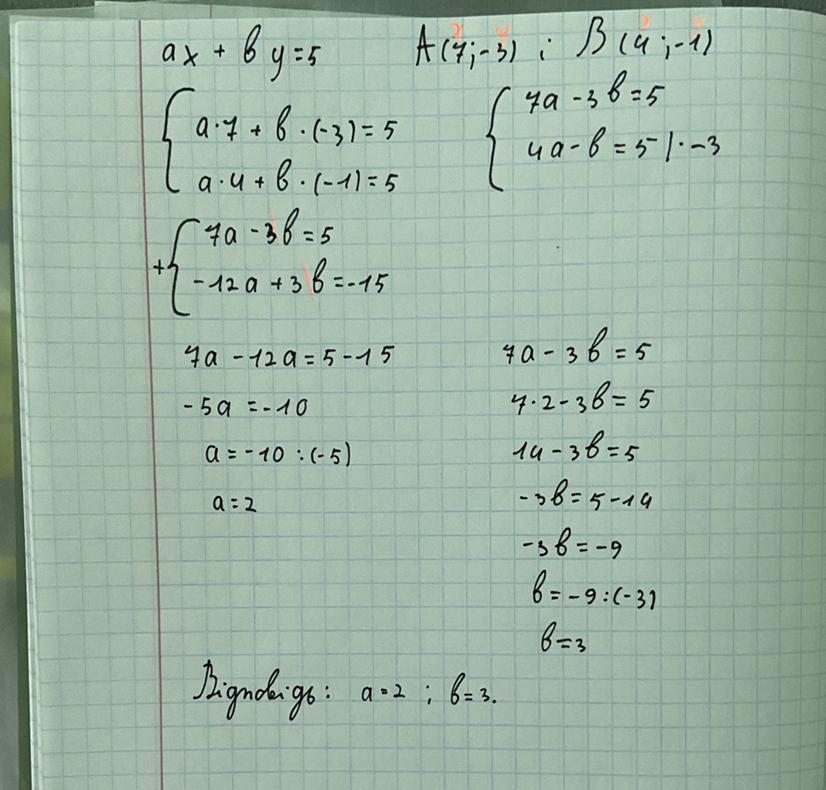 ax + by = 5 A(7; -3) ; B(4; -1)
{ a·7 + b·(-3) = 5
a·4 + b·(-1) = 5
{ 7a - 3b = 5
4a - b = 5 | · -3
+{ 7a - 3b = 5
-12a + 3b = -15
7a - 12a = 5 - 15
-5a = -10
a = -10 : (-5)
a = 2
7a - 3b = 5
7·2 - 3b = 5
14 - 3b = 5
-3b = 5 - 14
-3b = -9
b = -9 : (-3)
b = 3
Відповідь: a = 2 ; b = 3.